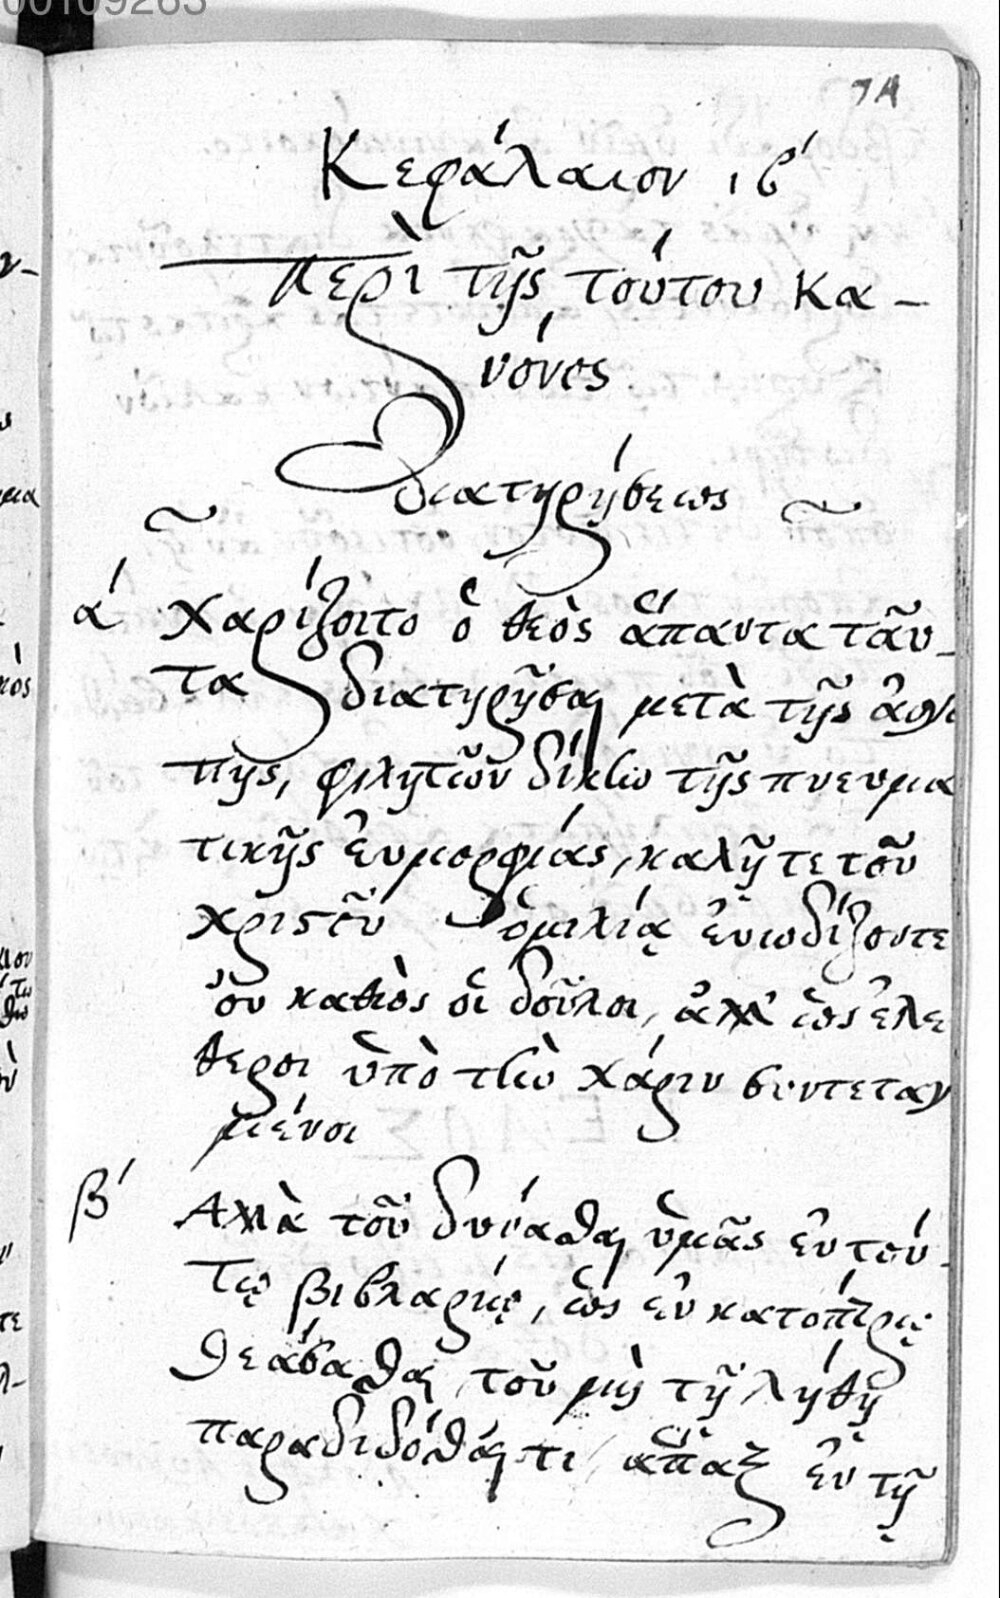 00109263
7A
Κεφάλαιον ιβ'
Περὶ τῆς τούτου κα-
νόνος
διατηρήσεως
α' Χαρίζοιτο ὁ θεὸς ἅπαντα ταῦ-
τα διατηρῆσαι μετὰ τῆς ἀγά
πης, φιλητῶν δίκην τῆς πνευμα
τικῆς ἐυμορφίας, καλῇ τε τοῦ
χριστοῦ ὁμιλίᾳ ἐυωδίζοντε
ὀυ καθὼς οἱ δοῦλοι, ἀλλ' ὡς ἐλε
θεροι ὑπὸ τὴν χάριν συντεταγ
μένοι
β' Αλλὰ τοῦ δύνασθαι ὑμᾶς ἐν τού-
τῳ βιβλαρίῳ, ὡς ἐν κατόπτρῳ
θεάσασθαι, τοῦ μὴ τῇ λήθῃ
παραδίδοσθαί τι, ἅπαξ ἐν τῇ